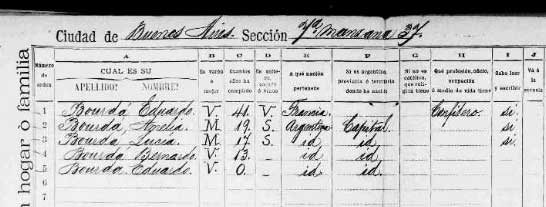 Ciudad de Buenos Aires. Sección 7a manzana 37.
n hogar ò familia
A B C D E F G H I J
Número de orden CUÁL ES SU APELLIDO? NOMBRE? Es varón ò mujer Cuantos años ha cumplido Es soltero, casado ò viudo A qué nación pertenece Si es argentino, provincia ò territorio donde ha nacido Si no es católico, que religión tiene Qué profesión, oficio, ocupación ò medio de vida tiene Sabe leer y escribir
1 Bourdá Eduardo V. 41. V. Francia Confitero. si
2 Bourdá, Amelia M. 19. S. Argentina Capital. si
3 Bourdá Lucia M. 17 S. id id. si.
4 Bourdá Bernardo V. 13. - id id
5 Bourdá Eduardo. V. 0 - id. id.
6
7